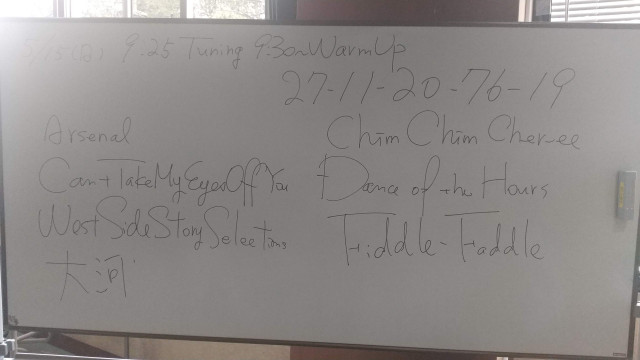 5/15(日) 9:25 Tuning 9:30~WarmUp
27-11-20-76-19
Arsenal
Can't Take My Eyes Off You
West Side Story Selections
大河
Chim Chim Cher-ee
Dance of the Hours
Fiddle-Faddle